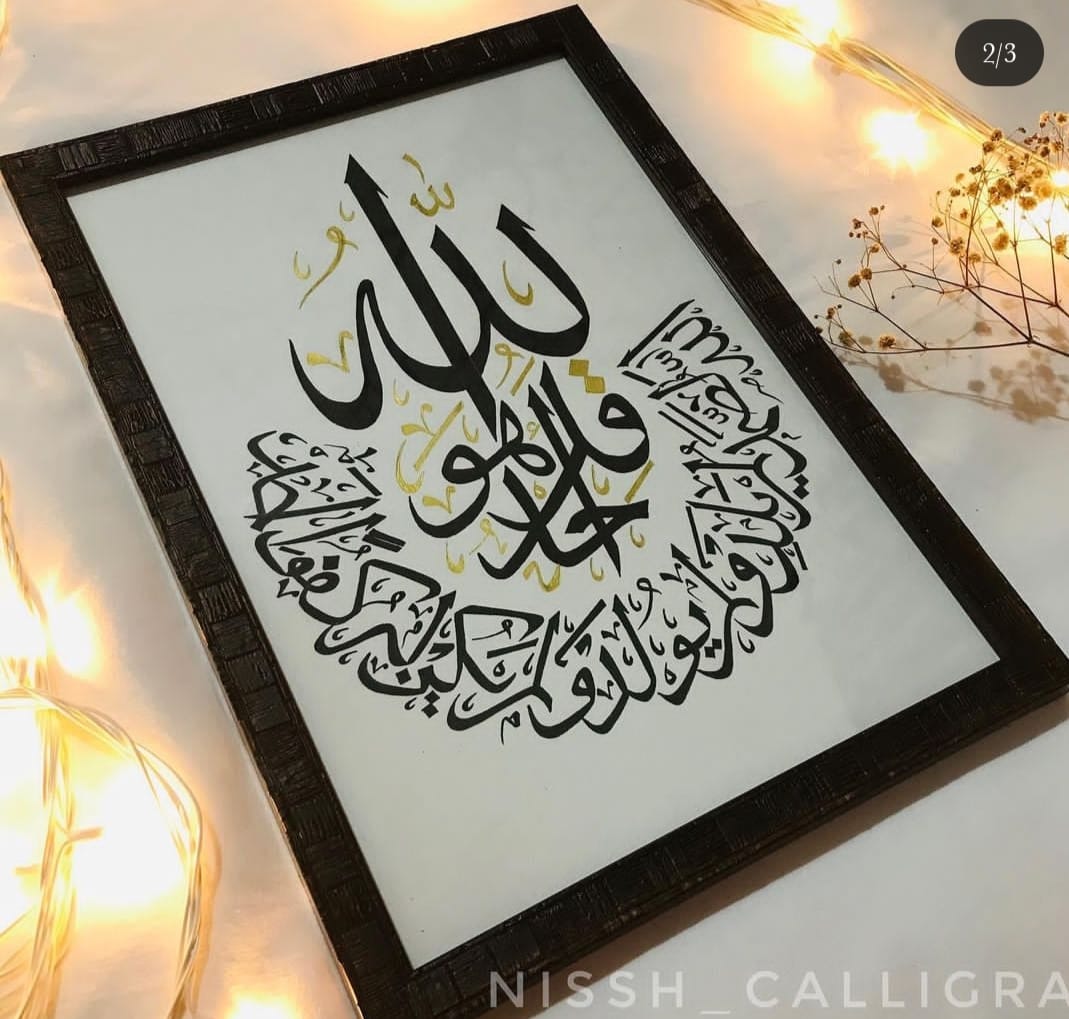 2/3
قل هو الله أحد
الله الصمد لم يلد ولم يولد ولم يكن له كفوا أحد
NISSH_CALLIGRA